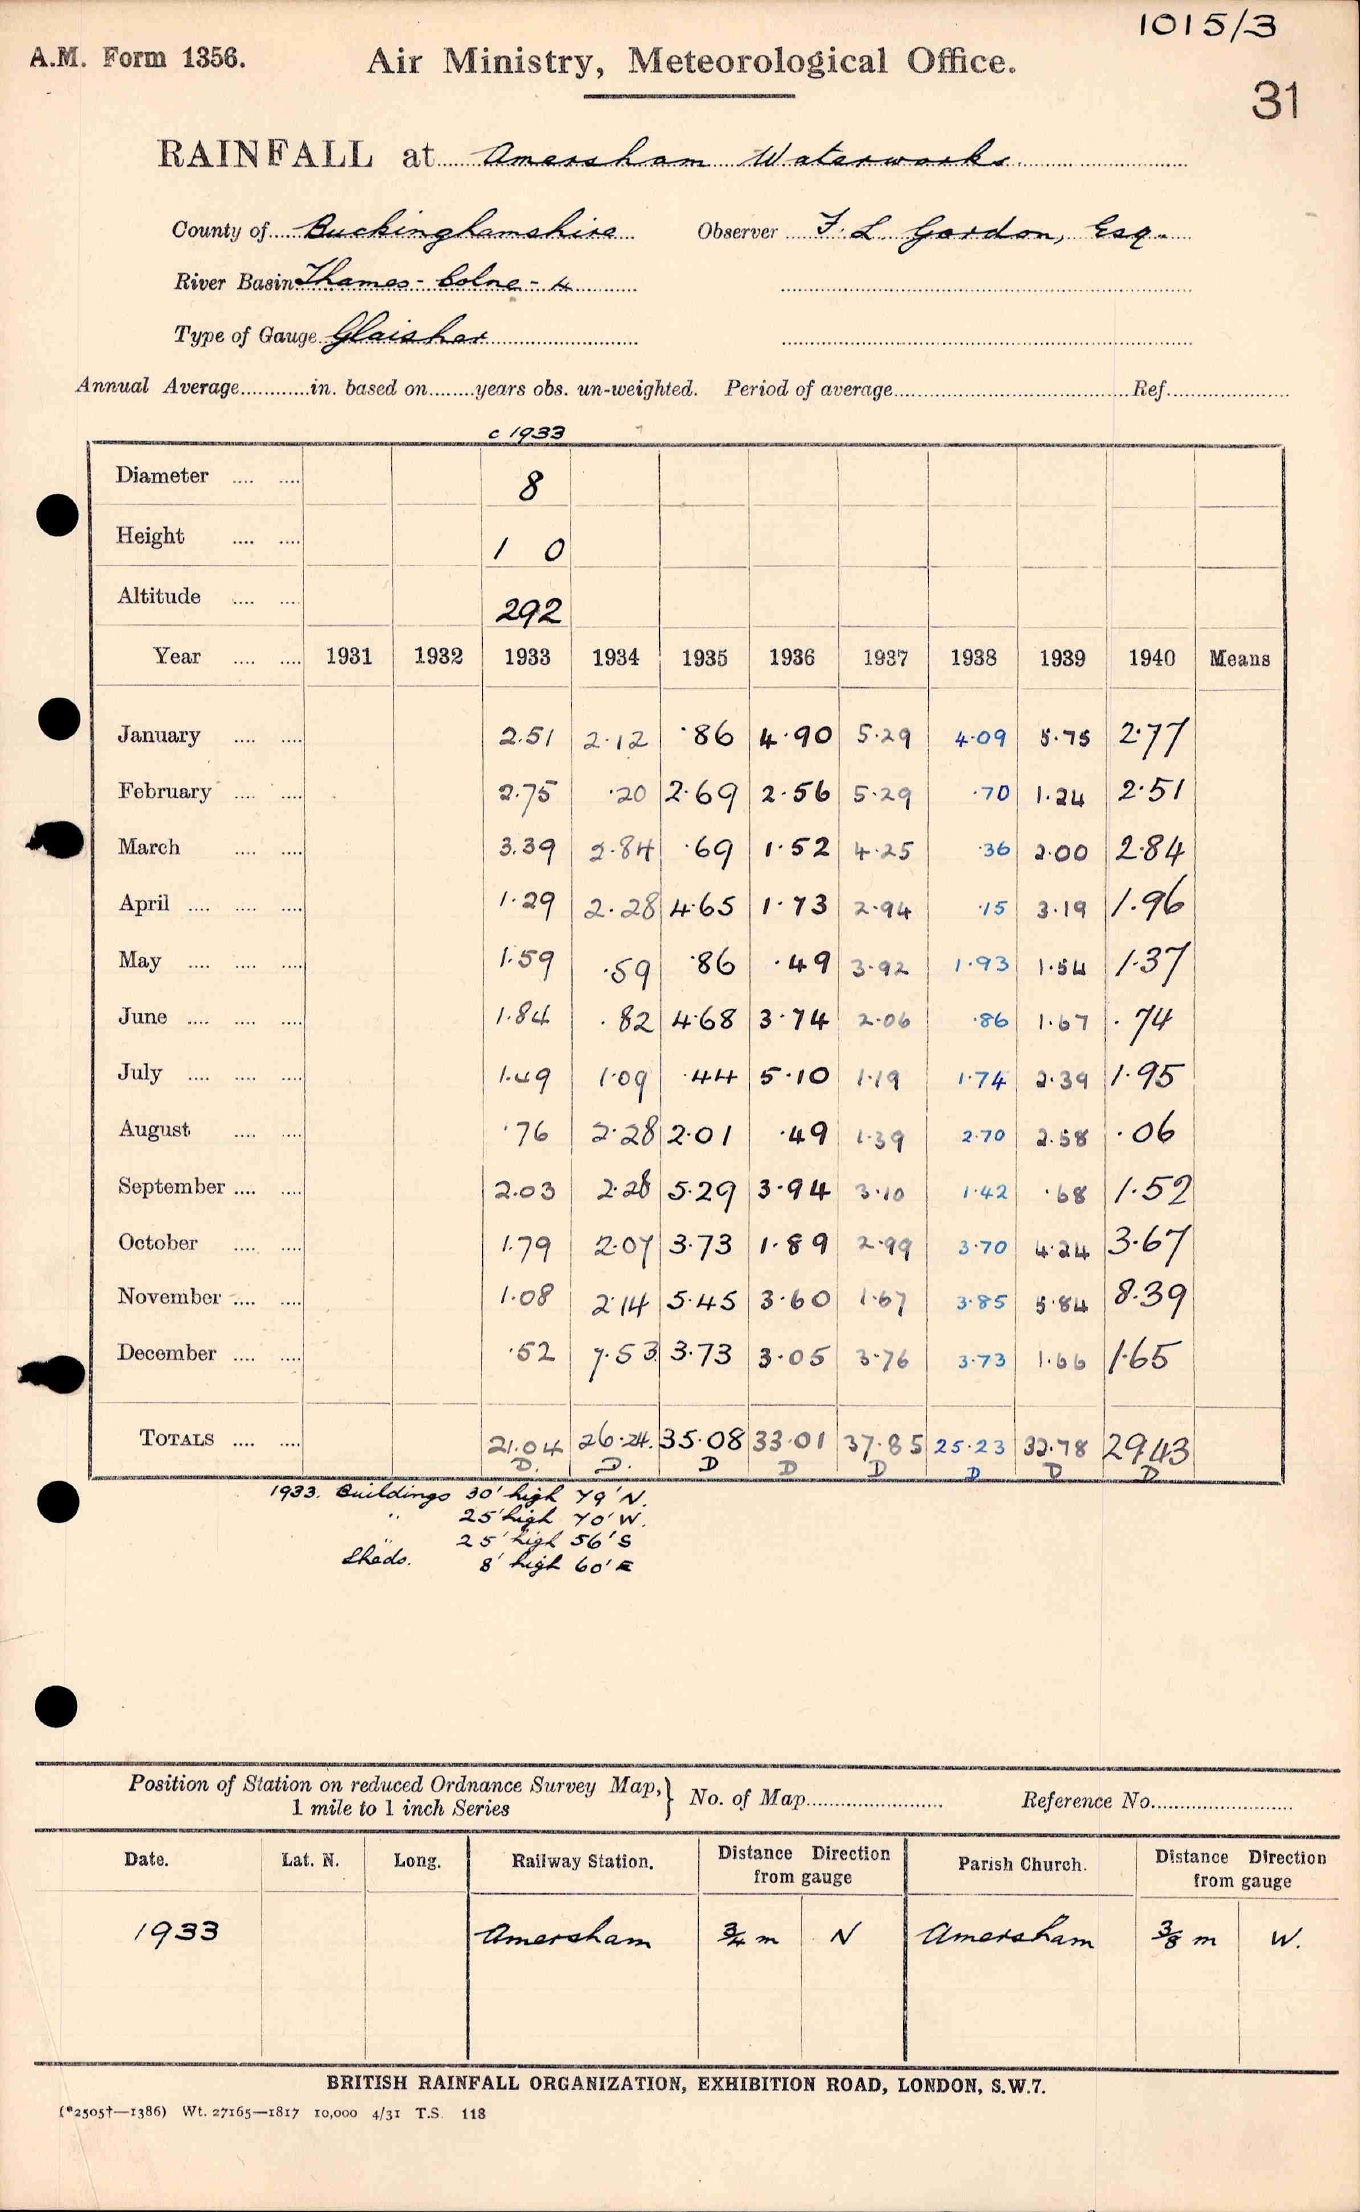 1015/3
A.M. Form 1356. Air Ministry, Meteorological Office.
31
RAINFALL at Amersham Waterworks
County of Buckinghamshire Observer F. L. Gordon, Esq.
River Basin Thames - Colne - 4
Type of Gauge Glaisher
Annual Average............in. based on........years obs. un-weighted. Period of average............Ref............
c 1933
Diameter .... .... 8
Height .... .... 1 0
Altitude .... .... 292
Year .... .... 1931 1932 1933 1934 1935 1936 1937 1938 1939 1940 Means
January .... .... 2.51 2.12 .86 4.90 5.29 4.09 5.75 2.77
February .... .... 2.75 .20 2.69 2.56 5.29 .70 1.24 2.51
March .... .... 3.39 2.84 .69 1.52 4.25 .36 2.00 2.84
April .... .... .... 1.29 2.28 4.65 1.73 2.94 .15 3.19 1.96
May .... .... .... 1.59 .59 .86 .49 3.92 1.93 1.54 1.37
June .... .... .... 1.84 .82 4.68 3.74 2.06 .86 1.67 .74
July .... .... .... 1.49 1.09 .44 5.10 1.19 1.74 2.39 1.95
August .... .... .76 2.28 2.01 .49 1.39 2.70 2.58 .06
September .... .... 2.03 2.28 5.29 3.94 3.10 1.42 .68 1.52
October .... .... 1.79 2.07 3.73 1.89 2.99 3.70 4.24 3.67
November .... .... 1.08 2.14 5.45 3.60 1.67 3.85 5.84 8.39
December .... .... .52 7.53 3.73 3.05 3.76 3.73 1.66 1.65
TOTALS .... .... 21.04 26.24. 35.08 33.01 37.85 25.23 32.78 29.43
D. D. D D D D D D
1933. Buildings 30' high 79' N.
" 25' high 70' W.
" 25' high 56' S
Sheds. 8' high 60' E
Position of Station on reduced Ordnance Survey Map,} No. of Map............ Reference No............
1 mile to 1 inch Series
Date. Lat. N. Long. Railway Station. Distance Direction from gauge Parish Church. Distance Direction from gauge
1933 Amersham 3/4 m N Amersham 3/8 m W.
BRITISH RAINFALL ORGANIZATION, EXHIBITION ROAD, LONDON, S.W.7.
(*2505†—1386) Wt. 27165—1817 10,000 4/31 T.S. 118